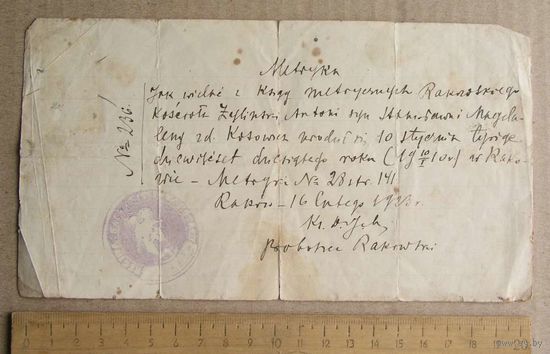 Metryka
Jak widać z Ksiąg metrycznych Rakowskiego
Kościoła Antoni syn Stanisława i Magda-
leny zd. Kosowicz urodził się 10 stycznia tysiąc
dziewięćset dziesiątego roku (19 10/I 10r) w Rako-
wie – Metryka No 28 str. 141
Raków – 16 Lutego 1923 r.
Ks.
Proboszcz Rakowski
No 236.
0 1 2 3 4 5 6 7 8 9 10 11 12 13 14 15 16 17 18 19 20